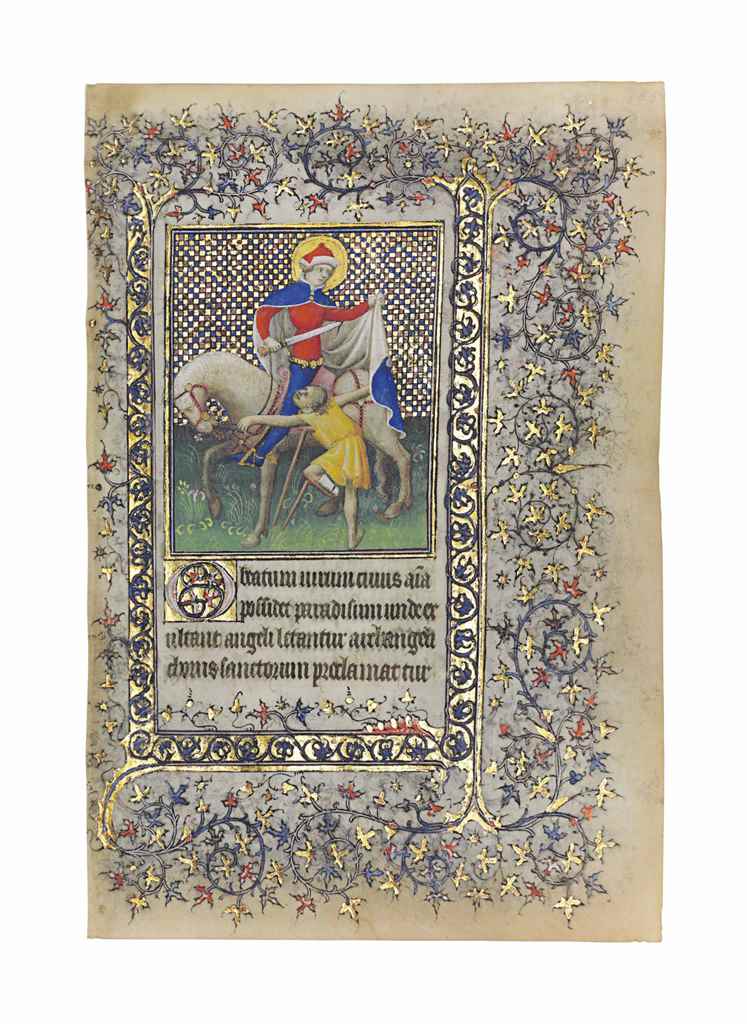 O beatum uirum cuius aĩa
possidet paradisum unde ex
ultant angeli letantur archangeli
chorus sanctorum proclamat tur